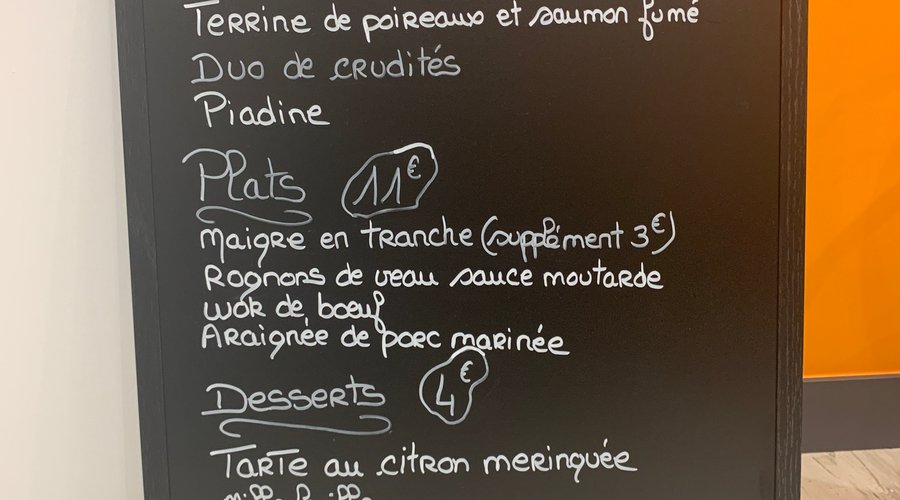 Terrine de poireaux et saumon fumé
Duo de crudités
Piadine
Plats 11€
Maigre en tranche (supplément 3€)
Rognons de veau sauce moutarde
Wok de bœuf
Araignée de porc marinée
Desserts 4€
Tarte au citron meringuée